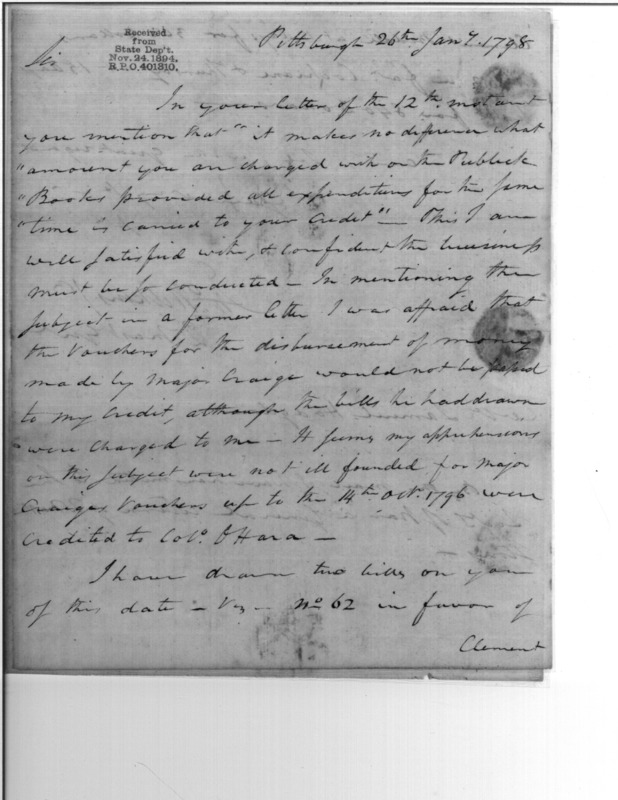 Received
from
State Dep't.
Nov. 24. 1894.
R.P.O. 401310.
Pittsburgh 26th Jany. 1798
Sir
In your letter of the 12th instant
you mention that "it makes no difference what
"amount you are charged with on the Publick
"Books provided all expenditures for the same
"time is carried to your Credit" — This I am
well satisfied with, & confident the business
must be so conducted — In mentioning this
subject in a former letter I was affraid that
the Vouchers for the disbursement of money
made by Major Craige would not be passed
to my Credit, although the bills he had drawn
were charged to me — It seems my apprehensions
on this subject were not ill founded for Major
Craiges Vouchers up to the 14th Oct. 1796 were
Credited to Colo. OHara —
I have drawn two bills on you
of this date — Viz — No 62 in favor of
Clement